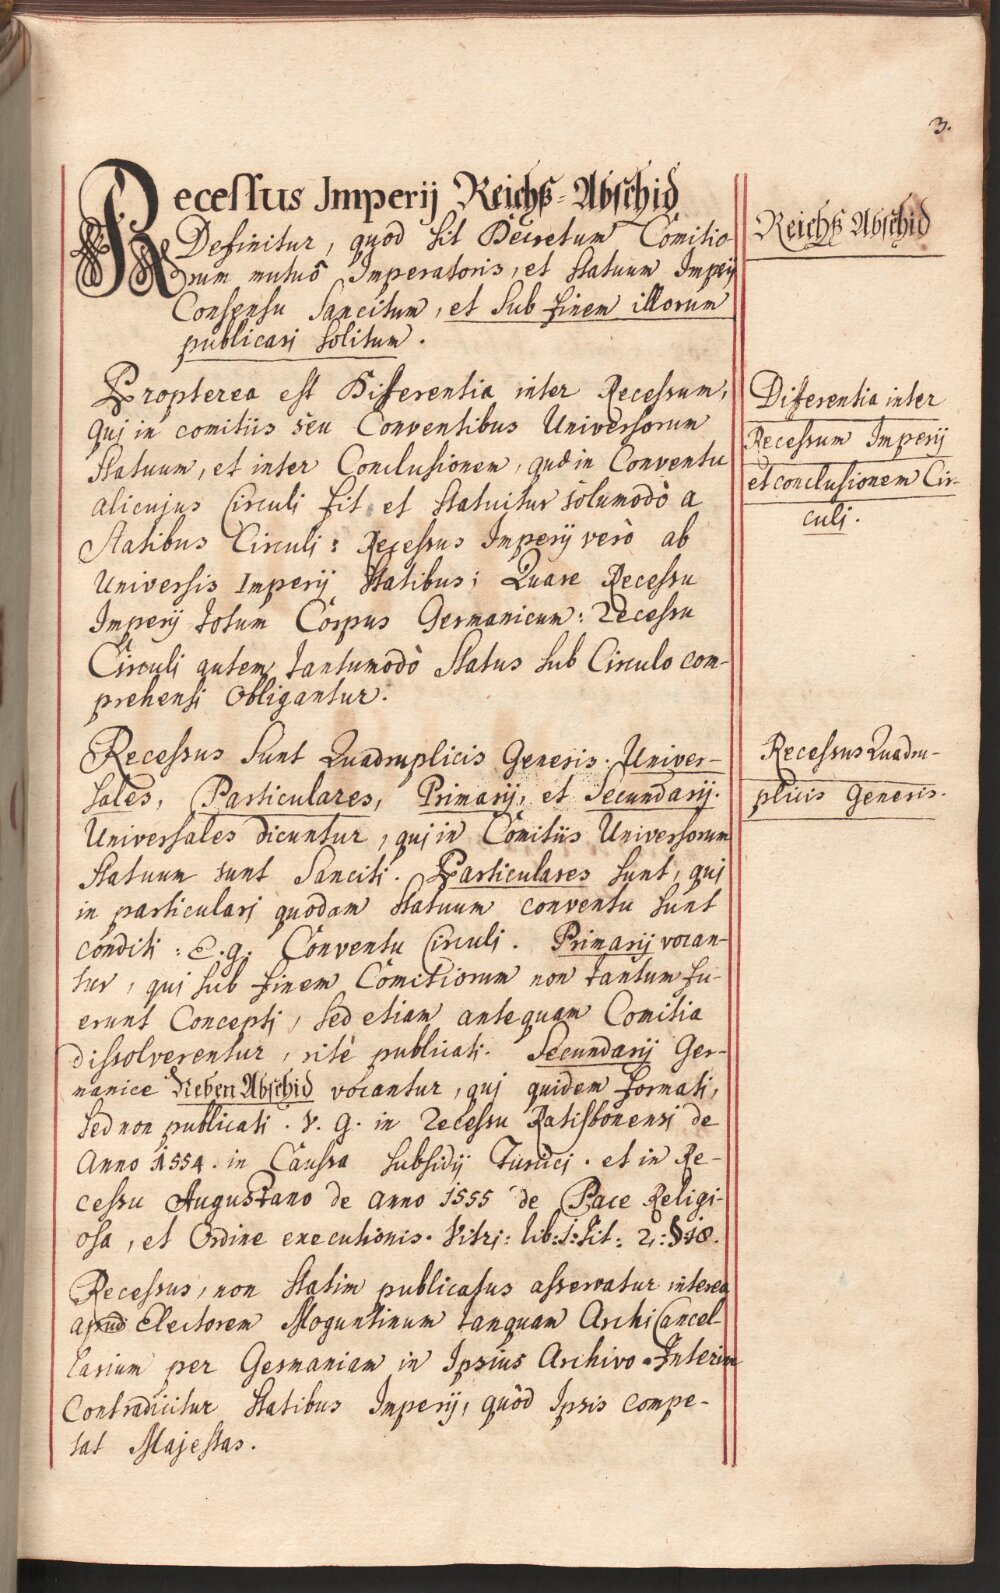 3.
Recessus Imperij Reichß-Abschid
Definitur, quod sit Decretum Comitio-
rum mutuô Imperatoris, et Statuum Imperij
Consensu Sancitum, et Sub finem illorum
publicari solitum.
Reichß Abschid
Propterea est Differentia inter Recessum,
qui in comitiis seu Conventibus Universorum
Statuum, et inter Conclusionem, quæ in Conventu
alicujus Circuli fit et statuitur solumodò a
Statibus Circuli: Recessus Imperij verò ab
Universis Imperij Statibus; Quare Recessu
Imperij totum Corpus Germanicum: Recessu
Circuli autem tantumodò Status sub Circulo com-
prehensi obligantur.
Differentia inter
Recessum Imperij
et conclusionem Cir-
culi.
Recessus Sunt Quadruplicis Generis. Univer-
sales, Particulares, Primarij, et Secundarij.
Universales dicuntur, qui in Comitiis Universorum
Statuum sunt Sanciti. Particulares Sunt, qui
in particulari quodam Statuum conventu sunt
conditi: E.g. Conventu Circuli. Primarij vocan-
tur, qui sub finem Comitiorum non tantum fu-
erunt Concepti, sed etiam antequam Comitia
dissolverentur, ritè publicati. Secundarij Ger-
manice Neben Abschid vocantur, qui quidem formati,
sed non publicati. V. g. in Recessu Ratisbonensi de
Anno 1554. in Caussa Subsidij Turcici. et in Re-
cessu Augustano de anno 1555 de Pace Religi-
osa, et Ordine executionis. Vitri: lib:1:tit: 2: §18.
Recessus Quadru-
plicis Generis.
Recessus, non statim publicatus asservatur interea
apud Electorem Moguntinum tanquam Archi Cancel
larium per Germaniam in Ipsius Archivo. Interim
Contradicitur Statibus Imperij, quòd Ipsis compe-
tat Majestas.